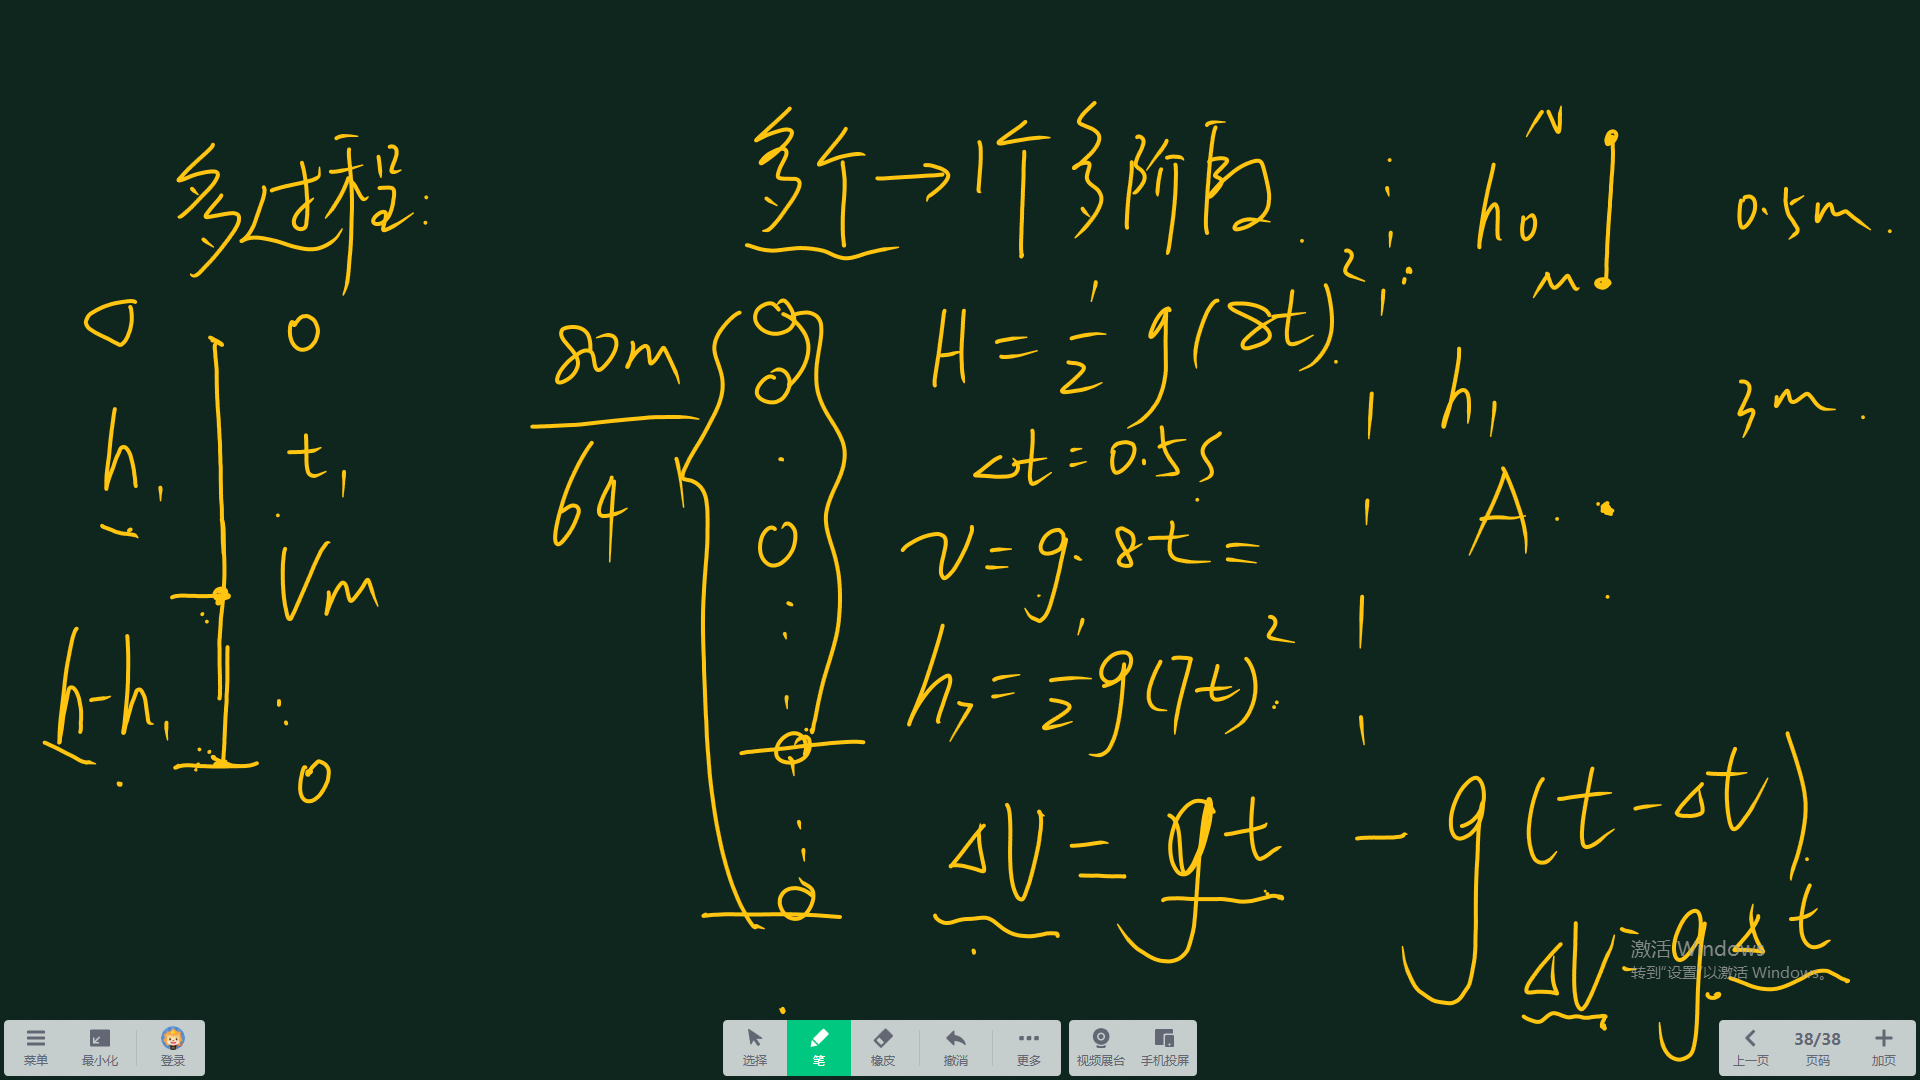 多过程:
0
h₁
t₁
Vm
h-h₁
0
多个→1个多阶段.
80m
64
H=½g(8t)².
Δt=0.5s
v=g·8t=
h₇=½g(7t)².
ΔV=gt-g(t-Δt)
ΔV=gΔt
N
h0
M
0.5m.
h₁
3m.
A.
激活 Windows
转到“设置”以激活 Windows。
菜单
最小化
登录
选择
笔
橡皮
撤消
更多
视频展台
手机投屏
上一页
38/38
页码
加页